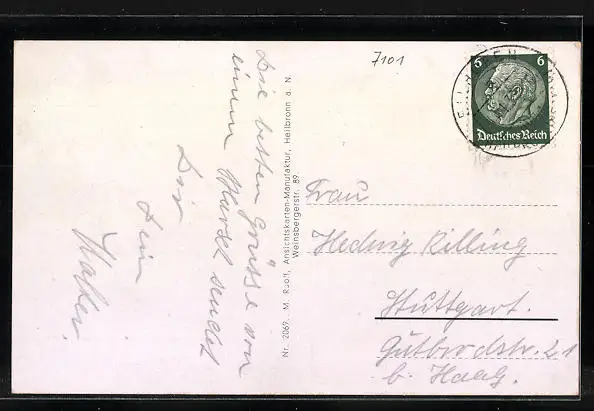 Die besten Grüsse von
einem Marsch sendet
Dir
Dein
7101
6 6
Deutsches Reich
Nr. 2069. M. Roolf, Ansichtskarten-Manufaktur, Heilbronn a. N.
Weinsbergerstr. 89
Frau
Hedwig Killing
Stuttgart.
Gutbrodstr. 21
b. Haag.